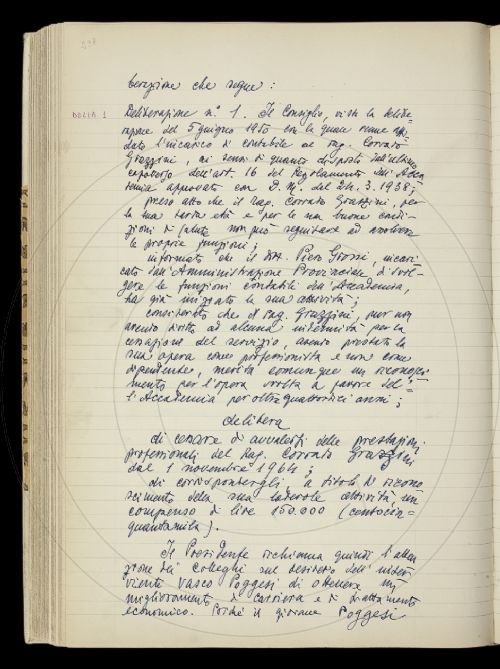 berazione che segue:
DELIB. 1
Deliberazione n° 1. Il Consiglio, vista la delibe=
razione del 5 giugno 1950 con la quale venne affi=
dato l'incarico di contabile al rag. Corrado
Grazzini, ai sensi di quanto disposto dall'ultimo
capoverso dell'art. 16 del Regolamento dell'Acca=
demia approvato con D.M. del 24.3.1938;
preso atto che il rag. Corrado Grazzini, per
la sua tarda età e per le non buone condi=
zioni di salute non può seguitare ad assolvere
le proprie funzioni;
informato che il dott. Piero Grossi, incari=
cato dall'Amministrazione Provinciale di svol=
gere le funzioni contabili dell'Accademia,
ha già iniziato la sua attività;
considerato che il rag. Grazzini, pur non
avendo diritto ad alcuna indennità per la
cessazione del servizio, avendo prestato la
sua opera come professionista e non come
dipendente, merita comunque un riconosci=
mento per l'opera svolta a favore del=
l'Accademia per oltre quattordici anni;
delibera
di cessare di avvalersi delle prestazioni
professionali del Rag. Corrado Grazzini
dal 1 novembre 1964;
di corrispondergli a titolo di ricono=
scimento della sua lodevole attività un
compenso di lire 150.000 (centocin=
quantamila).
Il Presidente richiama quindi l'atten=
zione dei Colleghi sul desiderio dell'inser=
viente Vasco Poggesi di ottenere un
miglioramento di carriera e di trattamento
economico. Poiché il giovane Poggesi